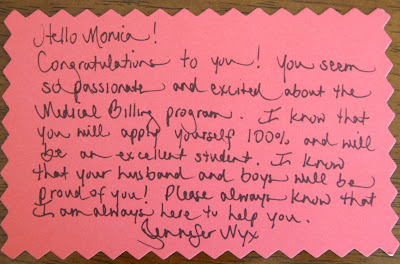 Hello Monica!
Congratulations to you! You seem
so passionate and excited about the
Medical Billing program. I know that
you will apply yourself 100% and will
be an excellent student. I know
that your husband and boys will be
proud of you! Please always know that
I am always here to help you.
Jennifer Nyx